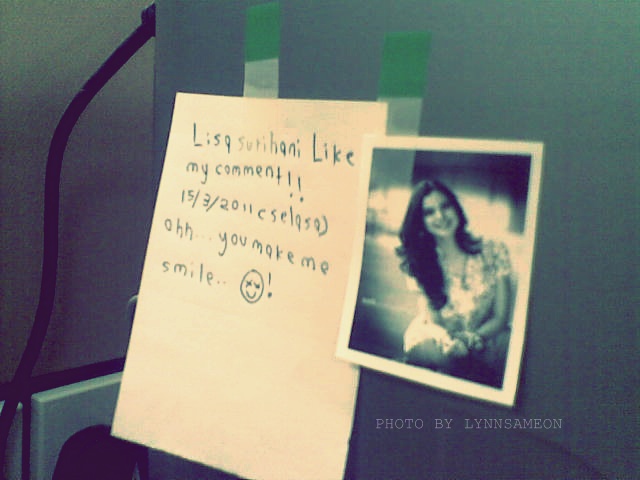 Lisa surihani Like
my comment!!
15/3/2011 (selasa)
ohh... you make me
smile.. !
PHOTO BY LYNNSAMEON